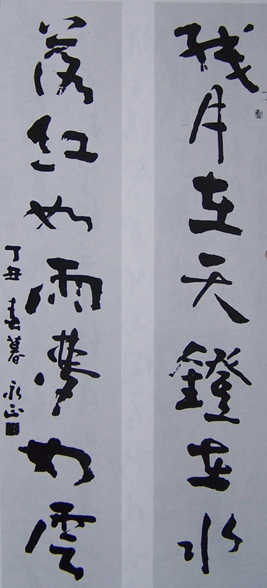 残月在天镫在水
落红如雨梦如云
丁丑春暮永正